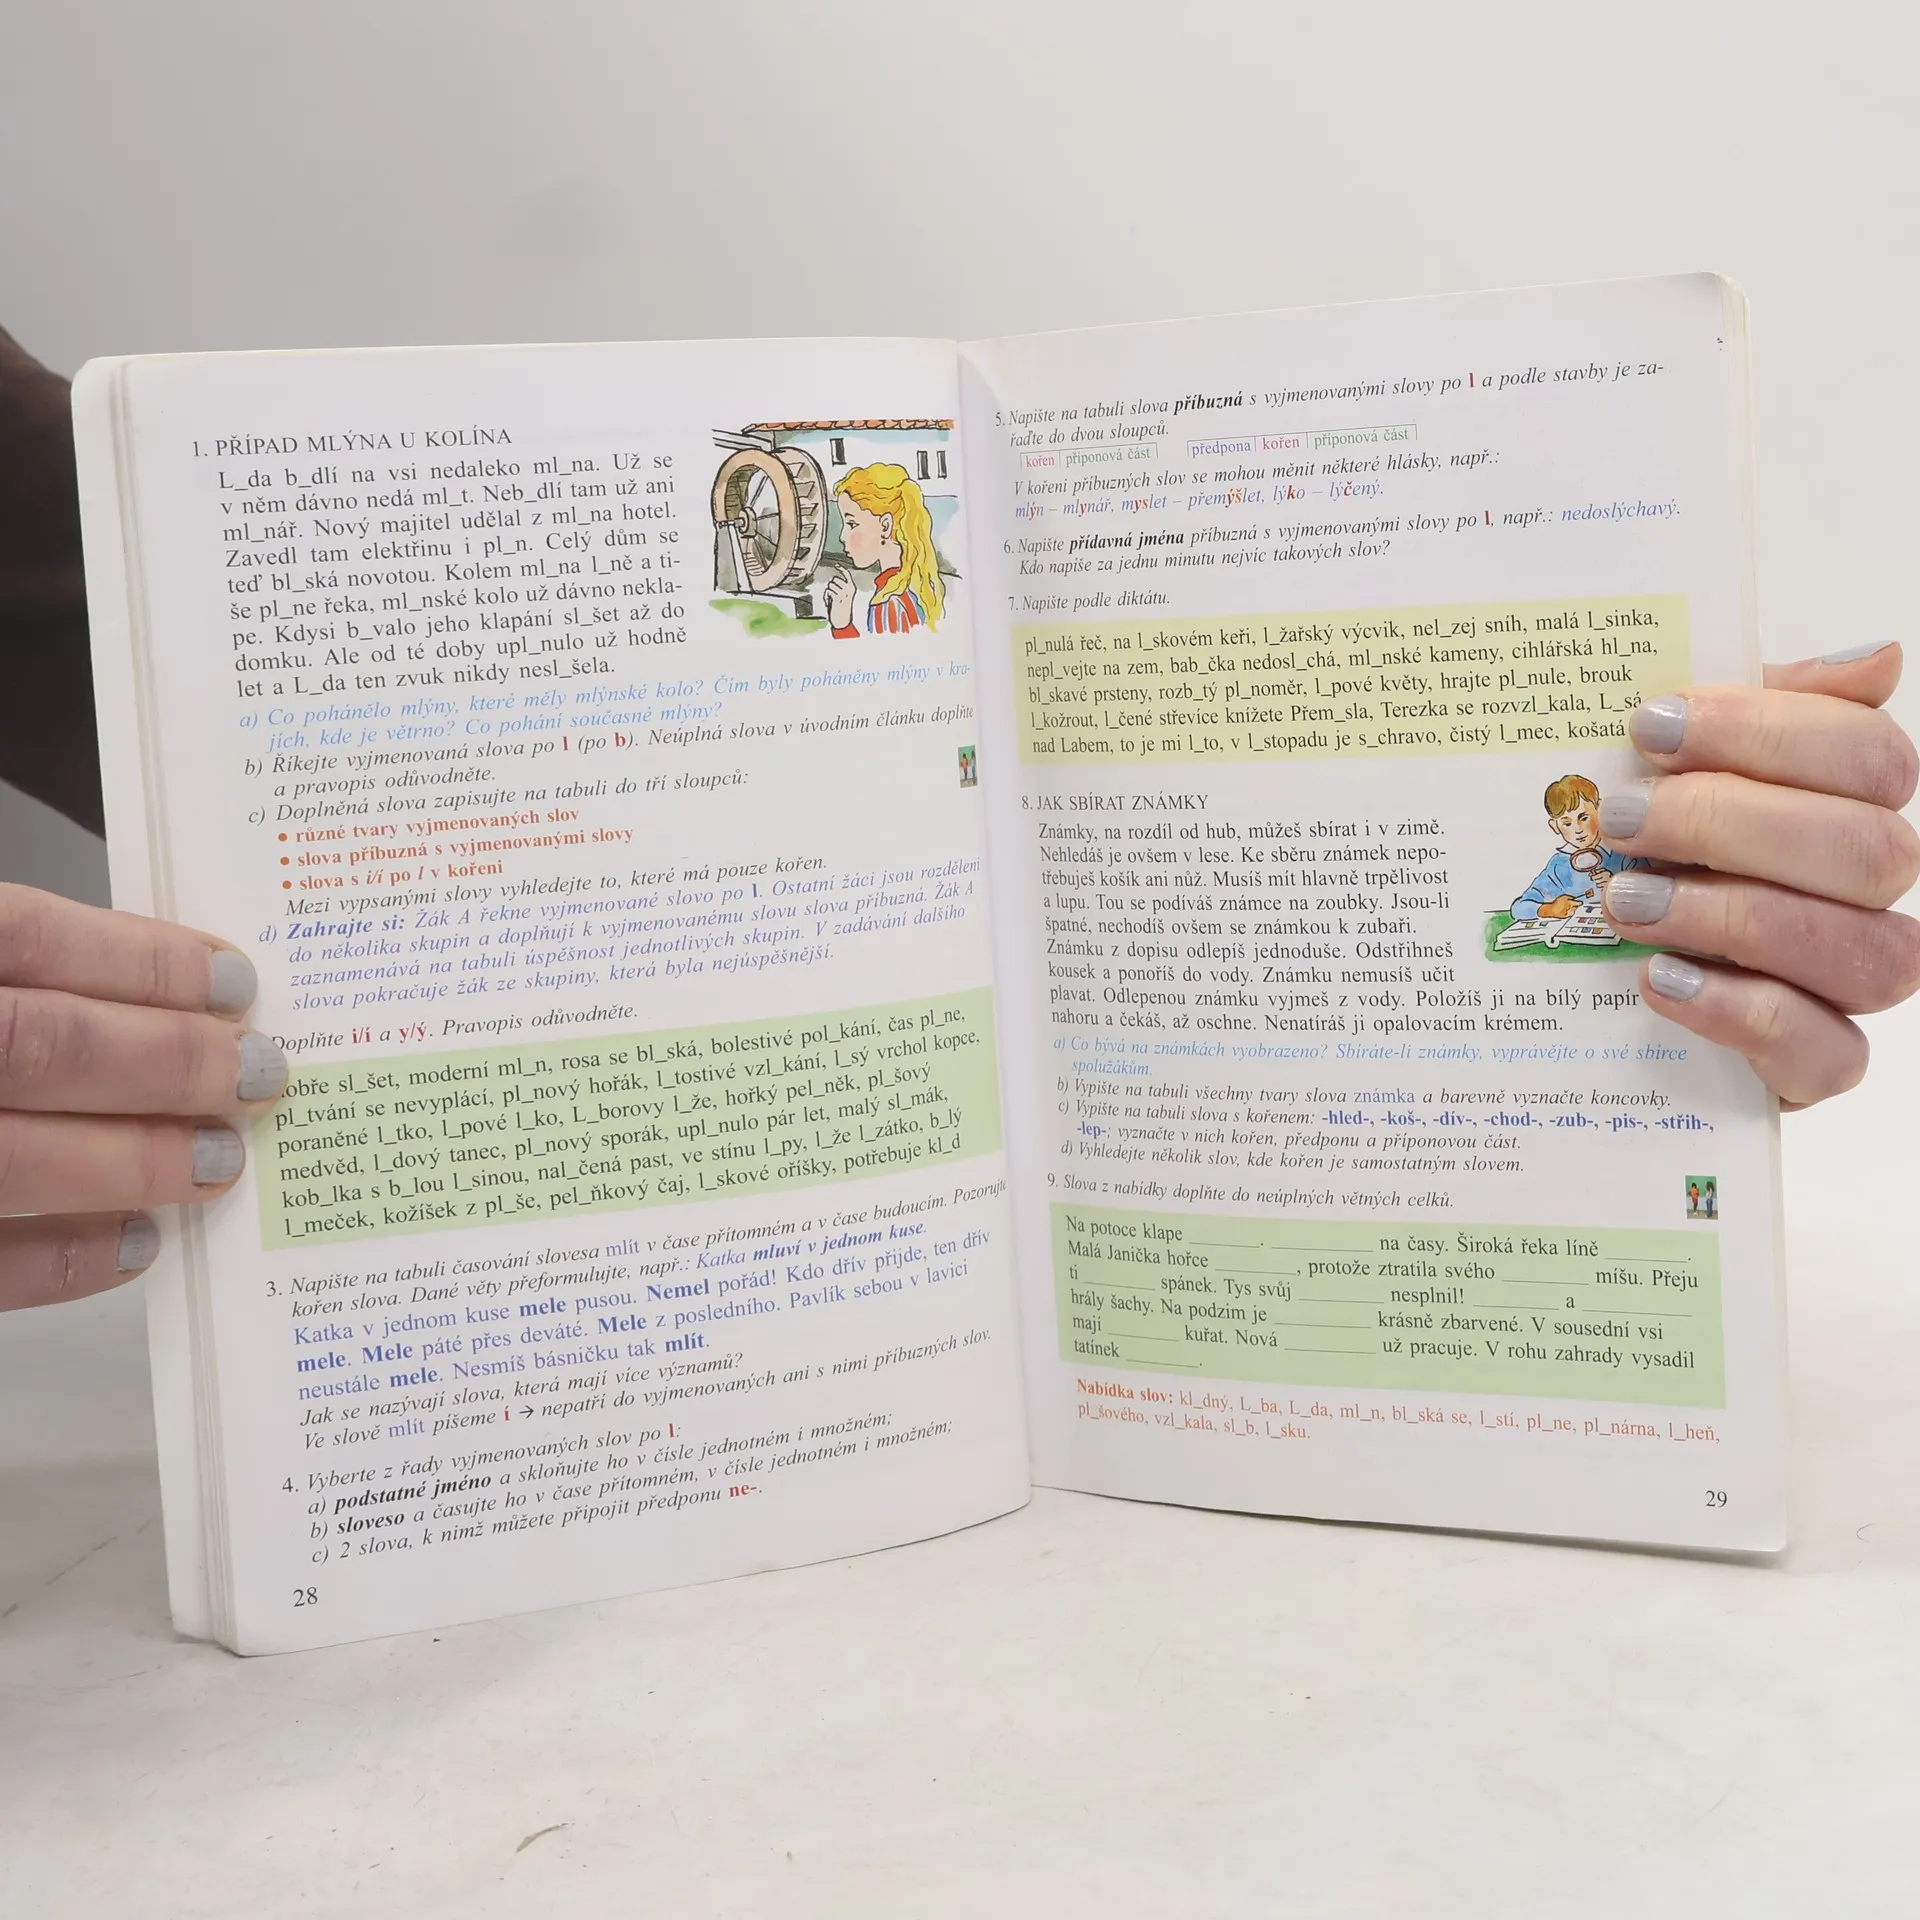 1. PŘÍPAD MLÝNA U KOLÍNA
L_da b_dlí na vsi nedaleko ml_na. Už se
v něm dávno nedá ml_t. Neb_dlí tam už ani
ml_nář. Nový majitel udělal z ml_na hotel.
Zavedl tam elektřinu i pl_n. Celý dům se
teď bl_ská novotou. Kolem ml_na l_ně a ti-
še pl_ne řeka, ml_nské kolo už dávno nekla-
pe. Kdysi b_valo jeho klapání sl_šet až do
domku. Ale od té doby upl_nulo už hodně
let a L_da ten zvuk nikdy nesl_šela.
a) Co pohánělo mlýny, které měly mlýnské kolo? Čím byly poháněny mlýny v kra-
jích, kde je větrno? Co pohání současné mlýny?
b) Říkejte vyjmenovaná slova po l (po b). Neúplná slova v úvodním článku doplňte
a pravopis odůvodněte.
c) Doplněná slova zapisujte na tabuli do tří sloupců:
• různé tvary vyjmenovaných slov
• slova příbuzná s vyjmenovanými slovy
• slova s i/í po l v kořeni
Mezi vypsanými slovy vyhledejte to, které má pouze kořen.
d) Zahrajte si: Žák A řekne vyjmenované slovo po l. Ostatní žáci jsou rozděleni
do několika skupin a doplňují k vyjmenovanému slovu slova příbuzná. Žák A
zaznamenává na tabuli úspěšnost jednotlivých skupin. V zadávání dalšího
slova pokračuje žák ze skupiny, která byla nejúspěšnější.
Doplňte i/í a y/ý. Pravopis odůvodněte.
sl_šet, moderní ml_n, rosa se bl_ská, bolestivé pol_kání, čas pl_ne,
pl_tvání se nevyplácí, pl_nový hořák, l_tostivé vzl_kání, l_sý vrchol kopce,
poraněné l_tko, l_pové l_ko, L_borovy l_že, hořký pel_něk, pl_šový
medvěd, l_dový tanec, pl_nový sporák, upl_nulo pár let, malý sl_mák,
kob_lka s b_lou l_sinou, nal_čená past, ve stínu l_py, l_že l_zátko, b_lý
l_meček, kožíšek z pl_še, pel_ňkový čaj, l_skové oříšky, potřebuje kl_d
3. Napište na tabuli časování slovesa mlít v čase přítomném a v čase budoucím. Pozorujte
kořen slova. Dané věty přeformulujte, např.: Katka mluví v jednom kuse.
Katka v jednom kuse mele pusou. Nemel pořád! Kdo dřív přijde, ten dřív
mele. Mele páté přes deváté. Mele z posledního. Pavlík sebou v lavici
neustále mele. Nesmíš básničku tak mlít.
Jak se nazývají slova, která mají více významů?
Ve slově mlít píšeme í → nepatří do vyjmenovaných ani s nimi příbuzných slov.
4. Vyberte z řady vyjmenovaných slov po l:
a) podstatné jméno a skloňujte ho v čísle jednotném i množném;
b) sloveso a časujte ho v čase přítomném, v čísle jednotném i množném;
c) 2 slova, k nimž můžete připojit předponu ne-.
28
5. Napište na tabuli slova příbuzná s vyjmenovanými slovy po l a podle stavby je za-
řaďte do dvou sloupců.
kořen příponová část předpona kořen příponová část
V kořeni příbuzných slov se mohou měnit některé hlásky, např.:
mlýn – mlynář, myslet – přemýšlet, lýko – lýčený.
6. Napište přídavná jména příbuzná s vyjmenovanými slovy po l, např.: nedoslýchavý.
Kdo napíše za jednu minutu nejvíc takových slov?
7. Napište podle diktátu.
pl_nulá řeč, na l_skovém keři, l_žařský výcvik, nel_zej sníh, malá l_sinka,
nepl_vejte na zem, bab_čka nedosl_chá, ml_nské kameny, cihlářská hl_na,
bl_skavé prsteny, rozb_tý pl_noměr, l_pové květy, hrajte pl_nule, brouk
l_kožrout, l_čené střevíce knížete Přem_sla, Terezka se rozvzl_kala, L_sá
nad Labem, to je mi l_to, v l_stopadu je s_chravo, čistý l_mec, košatá
8. JAK SBÍRAT ZNÁMKY
Známky, na rozdíl od hub, můžeš sbírat i v zimě.
Nehledáš je ovšem v lese. Ke sběru známek nepo-
třebuješ košík ani nůž. Musíš mít hlavně trpělivost
a lupu. Tou se podíváš známce na zoubky. Jsou-li
špatné, nechodíš ovšem se známkou k zubaři.
Známku z dopisu odlepíš jednoduše. Odstřihneš
kousek a ponoříš do vody. Známku nemusíš učit
plavat. Odlepenou známku vyjmeš z vody. Položíš ji na bílý papír
nahoru a čekáš, až oschne. Nenatíráš ji opalovacím krémem.
a) Co bývá na známkách vyobrazeno? Sbíráte-li známky, vyprávějte o své sbírce
spolužákům.
b) Vypište na tabuli všechny tvary slova známka a barevně vyznačte koncovky.
c) Vypište na tabuli slova s kořenem: -hled-, -koš-, -dív-, -chod-, -zub-, -pis-, -střih-,
-lep-; vyznačte v nich kořen, předponu a příponovou část.
d) Vyhledejte několik slov, kde kořen je samostatným slovem.
9. Slova z nabídky doplňte do neúplných větných celků.
Na potoce klape ______. ________ na časy. Široká řeka líně ______.
Malá Janička hořce ______, protože ztratila svého ______ míšu. Přeju
ti ______ spánek. Tys svůj ______ nesplnil! ______ a ________
hrály šachy. Na podzim je ________ krásně zbarvené. V sousední vsi
mají ______ kuřat. Nová ________ už pracuje. V rohu zahrady vysadil
tatínek ______.
Nabídka slov: kl_dný, L_ba, L_da, ml_n, bl_ská se, l_stí, pl_ne, pl_nárna, l_heň,
pl_šového, vzl_kala, sl_b, l_sku.
29